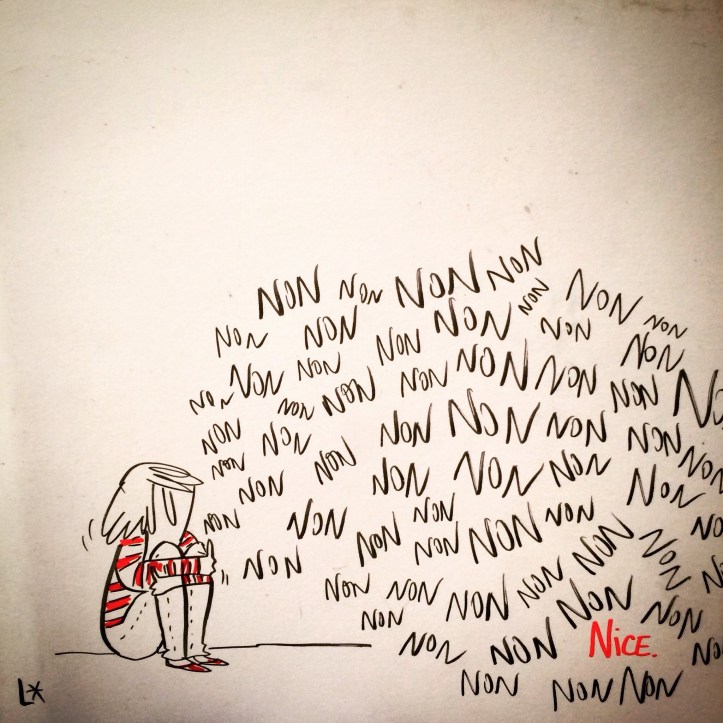 NON NON NON NON
NON NON
NON NON NON NON NON NON
NON NON NON NON NON NON NON
NON NON NON NO
NON NON NON NON NON NON
NON NON NON NON NON NON
NON NON
NON NON NON NON
NON NON NON NON NON NON
NON NON NON NON NON
NON NON
NON NON NICE. NO
NON NON NON
L*